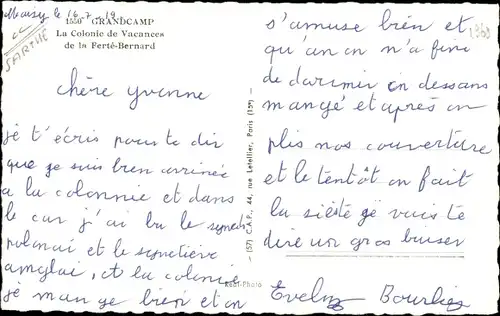 Maisy le 16.7.19
1550 GRANDCAMP
La Colonie de Vacances
de la Ferté-Bernard
SARTHE
chère yvonne
je t'écris pour te dir
que je suis bien arrivée
a la colonnie et dans
le car j'ai bu le
polonai et le simetière
anglai, et la colonie
je mange bien et on
(157) C.A.P., 44, rue Letellier, Paris (15e)
Real-Photo
s'amuse bien et
qu'an on n'a fini
de darmir on dessans
mangé et après on
plis nos couverture
et le tentôt on fait
la sièste ge vais te
dire un gros baiser
Evelyn